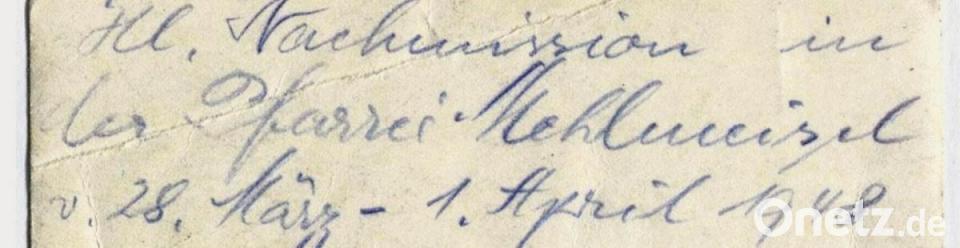 Hl. Nachmission in
der Pfarrei Mehlmeisel
v. 28. März - 1. April 1948
Onetz.de